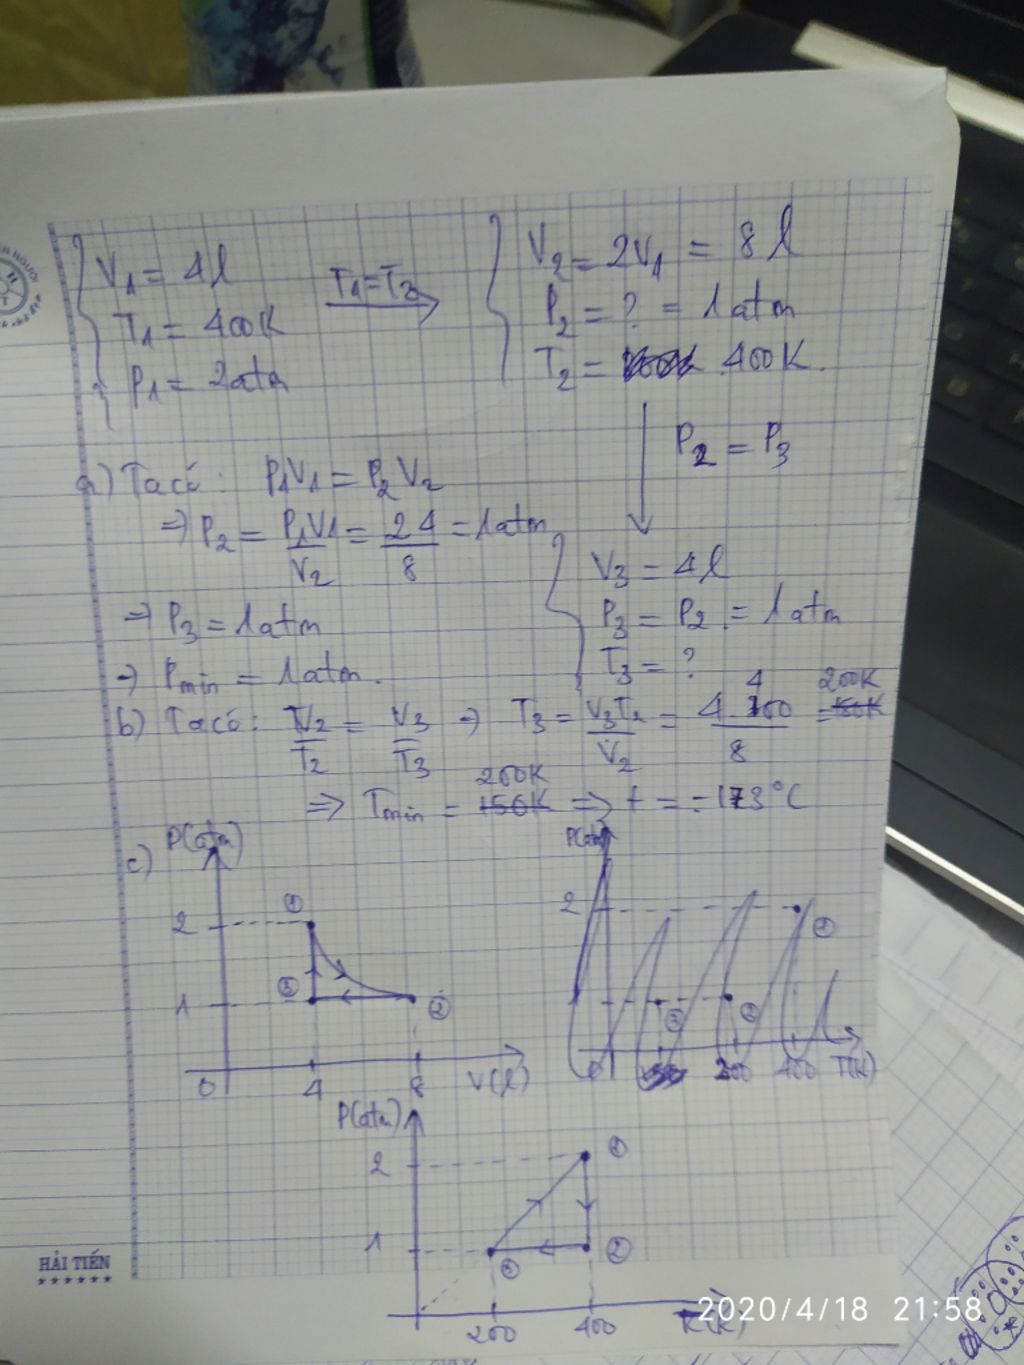 V₁ = 4l
T₁ = 400K
P₁ = 2atm
T₁ = T₂
V₂ = 2V₁ = 8l
P₂ = ? = 1atm
T₂ = 400K.
P₂ = P₃
a) Ta có: P₁V₁ = P₂V₂
⇒ P₂ = P₁V₁/V₂ = 2.4/8 = 1atm
⇒ P₃ = 1atm
⇒ Pmin = 1atm.
V₃ = 4l
P₃ = P₂ = 1atm
T₃ = ?
b) Ta có: V₂/T₂ = V₃/T₃ ⇒ T₃ = V₃T₂/V₂ = 4.400/8 = 200K
⇒ Tmin = 200K ⇒ t = -173°C
c)
P(atm)
2
①
1
③
②
0
4
8
V(l)
P(atm)
2
①
1
③
②
0
400
T(K)
P(atm)
2
①
1
③
②
200
400
HẢI TIẾN
2020/4/18 21:58